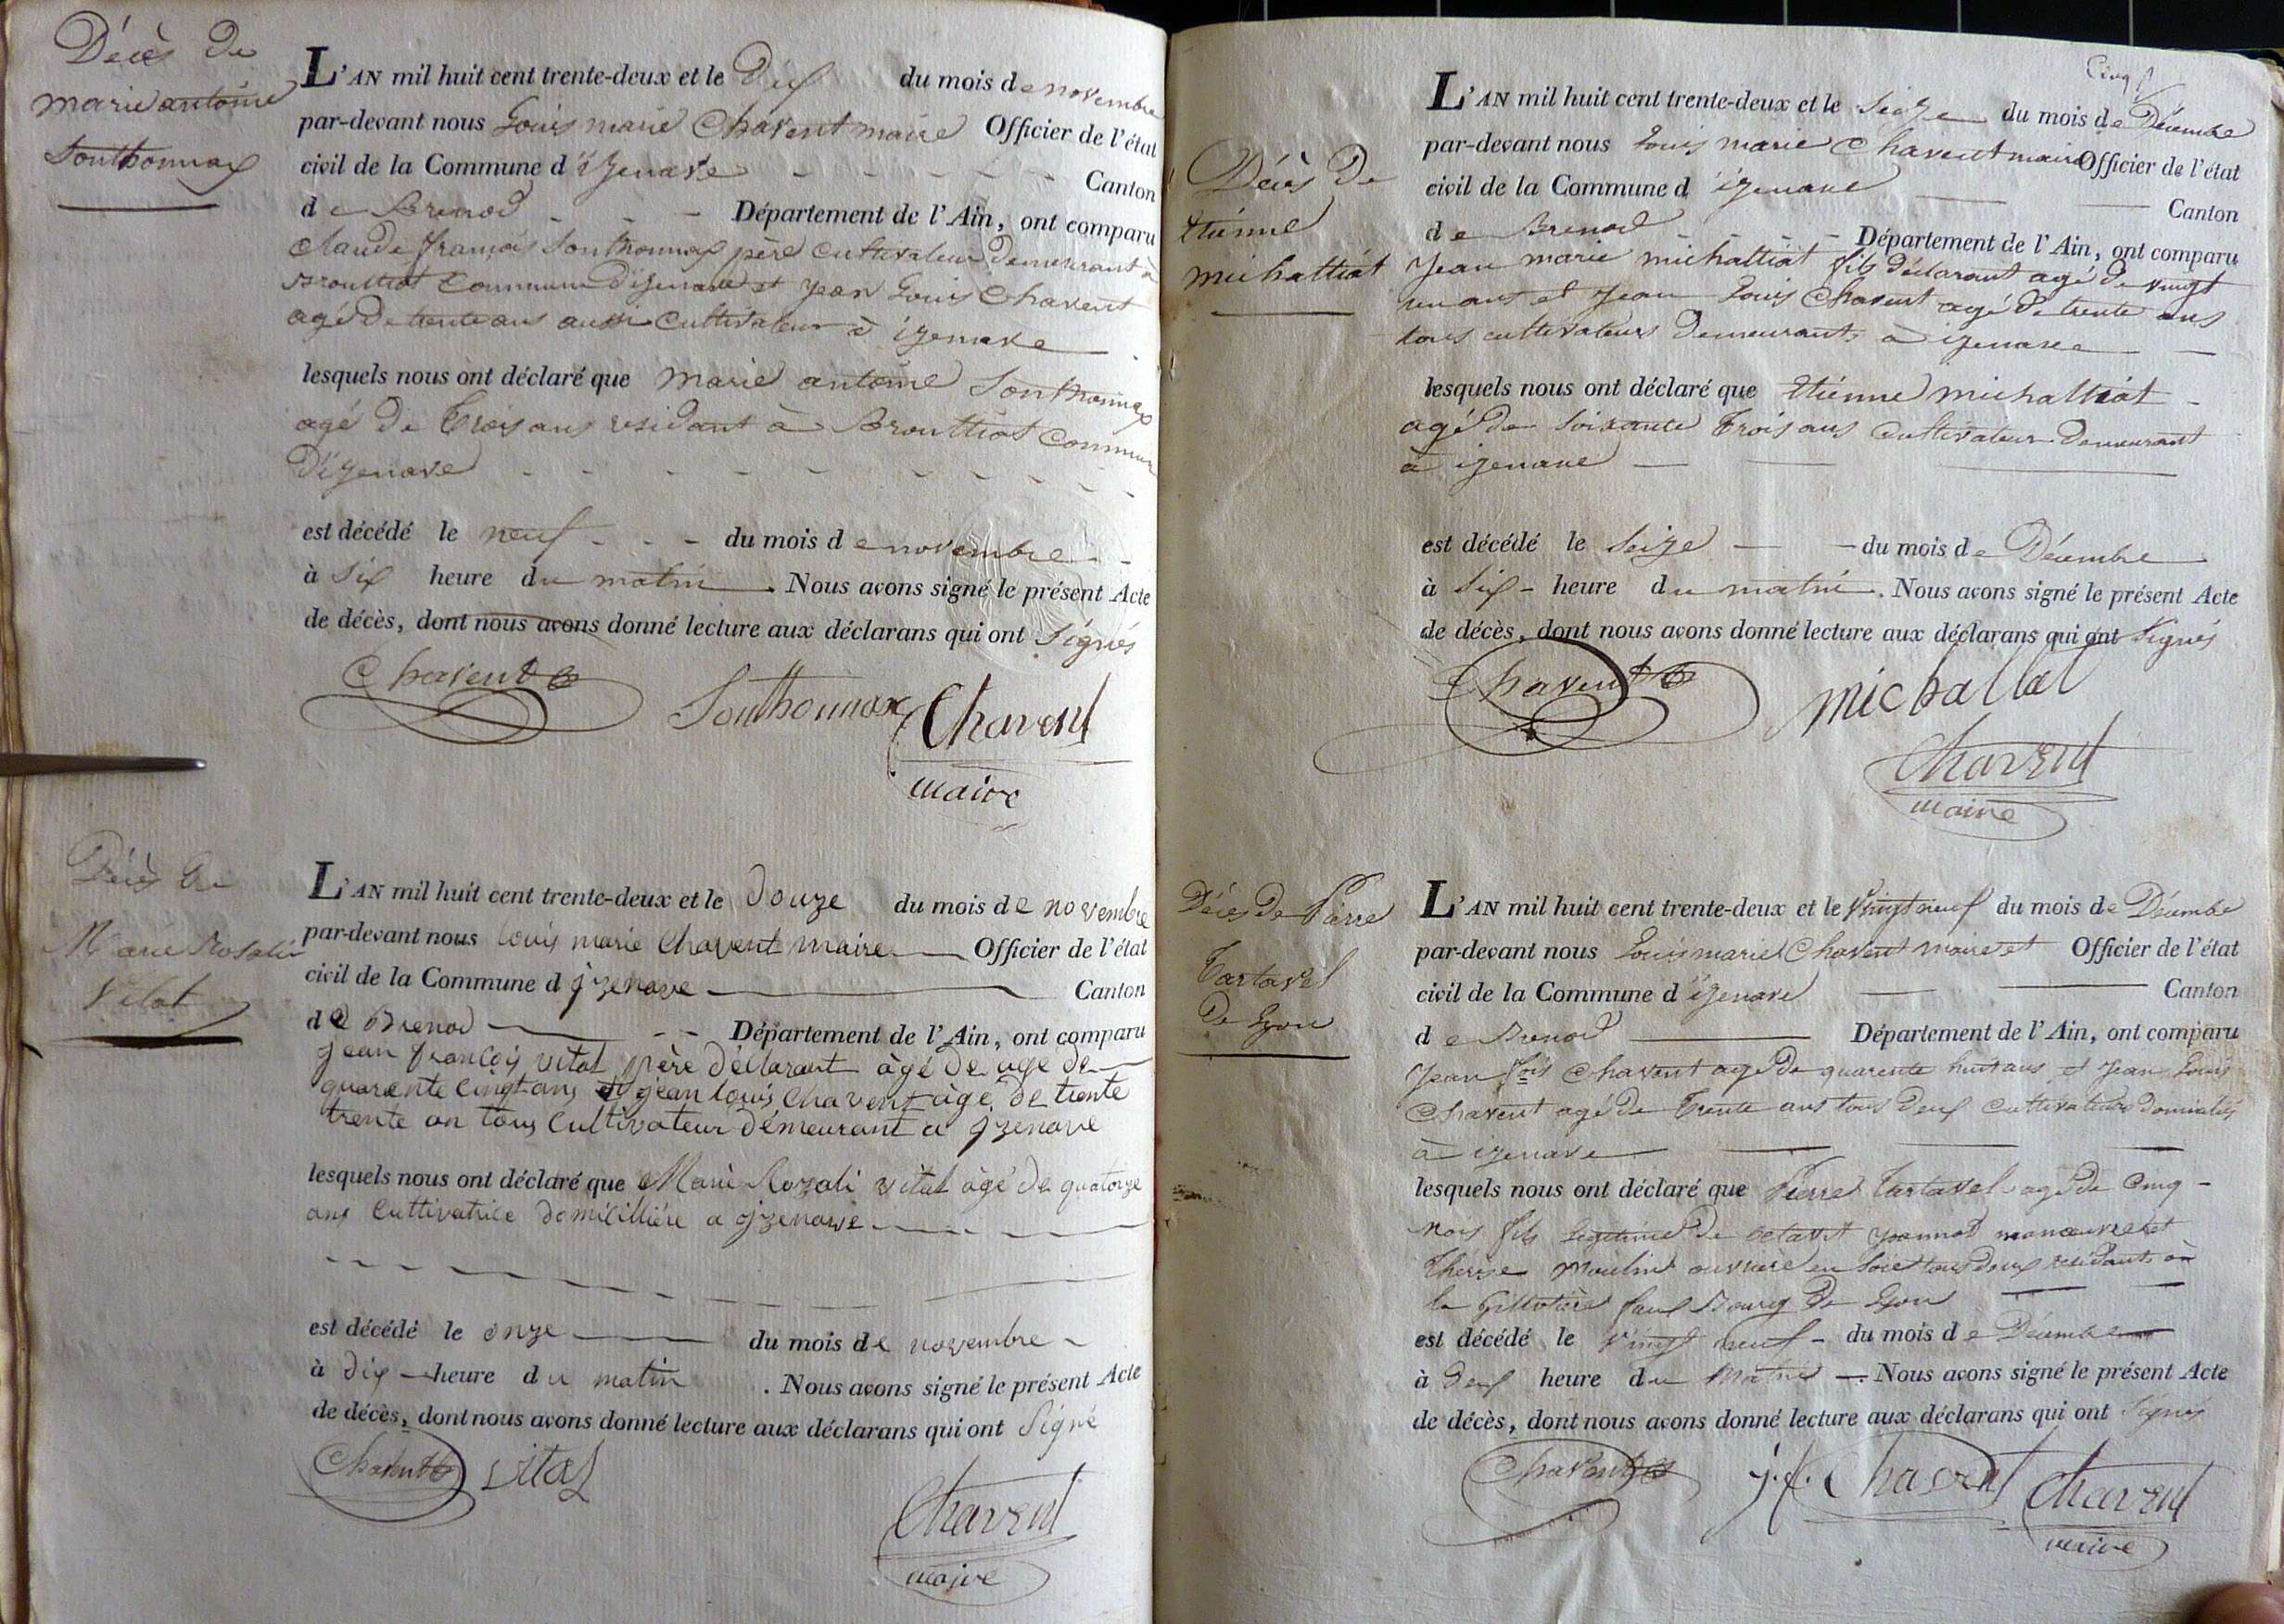 Décès de
marie antoine
Sonthonnax
L'AN mil huit cent trente-deux et le dix du mois de novembre
par-devant nous Louis marie Chavent maire Officier de l'état
civil de la Commune d'izenave - - - - - Canton
de Brenod - - - Département de l'Ain, ont comparu
Claude françois Sonthonnax père cultivateur demeurant à
Brouttiat Commune d'izenave et jean Louis Chavent
agé de trente ans aussi cultivateur à izenave
lesquels nous ont déclaré que marie antoine Sonthonnax
agé de trois ans residant à Brouttiat Commune
d'izenave - - - - - - - -
est décédé le neuf - - - du mois de novembre - -
à six heure du matin . Nous avons signé le présent Acte
de décès, dont nous avons donné lecture aux déclarans qui ont signés
Chavent
Sonthonnax
Chavent
maire
Décès de
Marie Rosalie
Vital
L'AN mil huit cent trente-deux et le douze du mois de novembre
par-devant nous louis marie Chavent maire Officier de l'état
civil de la Commune d jzenave Canton
de Brenod - - Département de l'Ain, ont comparu
jean françois vital père déclarant àgé de age de
quarente cinqt ans et jean louis chavent àgé de trente
trente an tous cultivateur démeurant a jzenave
lesquels nous ont déclaré que Marie Rozali vital àgé de quatorze
ans cultivatrice domicillière a jzenave
est décédé le onze du mois de novembre
à dix heure du matin . Nous avons signé le présent Acte
de décès, dont nous avons donné lecture aux déclarans qui ont signé
Chavent
vital
Chavent
maire
Cinq
Décès de
Etiénne
michattiat
L'AN mil huit cent trente-deux et le seize du mois de Décembre
par-devant nous Louis marie Chavent maire Officier de l'état
civil de la Commune d'izenave Canton
de Brenod - - - - Département de l'Ain, ont comparu
Jean marie michattiat fils déclarant agé de vingt
un ans et Jean Louis Chavent agé de trente ans
tous cultivateurs demeurants à izenave
lesquels nous ont déclaré que Etiénne michattiat
agé de soixante trois ans cultivateur demeurant
à izenave
est décédé le seize du mois de Décembre
à six heure du matin . Nous avons signé le présent Acte
de décès, dont nous avons donné lecture aux déclarans qui ont signés
Chavent
michallet
Chavent
maire
Décès de Pierre
Tartavel
de Lyon
L'AN mil huit cent trente-deux et le vingt neuf du mois de Décembre
par-devant nous Louis marie Chavent maire et Officier de l'état
civil de la Commune d'izenave Canton
de Brenod Département de l'Ain, ont comparu
Jean fois Chavent agé de quarente huit ans et Jean Louis
Chavent agé de trente ans tous deux cultivateurs domiciliés
à izenave
lesquels nous ont déclaré que Pierre Tartavel agé de cinq
mois fils legitime de manœuvre et
Thérèse Moulin ouvrière en soie tous deux residants à
la Guillotière faux Bourg de Lyon
est décédé le vingt neuf - du mois de Décembre
à deux heure du matin . Nous avons signé le présent Acte
de décès, dont nous avons donné lecture aux déclarans qui ont signés
Chavent
j.f. Chavent
Chavent
maire